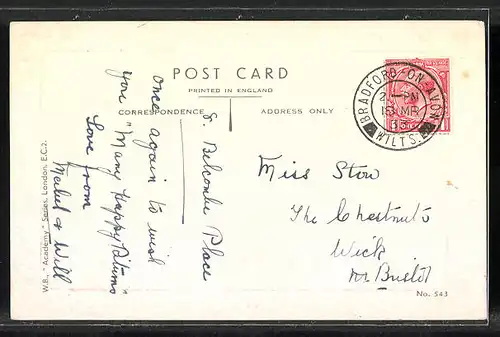 POST CARD
PRINTED IN ENGLAND
CORRESPONDENCE
ADDRESS ONLY
8. Belcombe Place
once again to wish
you "Many Happy Returns"
Love from
& Will
BRADFORD-ON-AVON
PM
18 MR
WILTS.
Miss Stow
The Chestnuts
Wick
nr Bristol
W.B., "Academy" Series, London, E.C.2.
No. 543